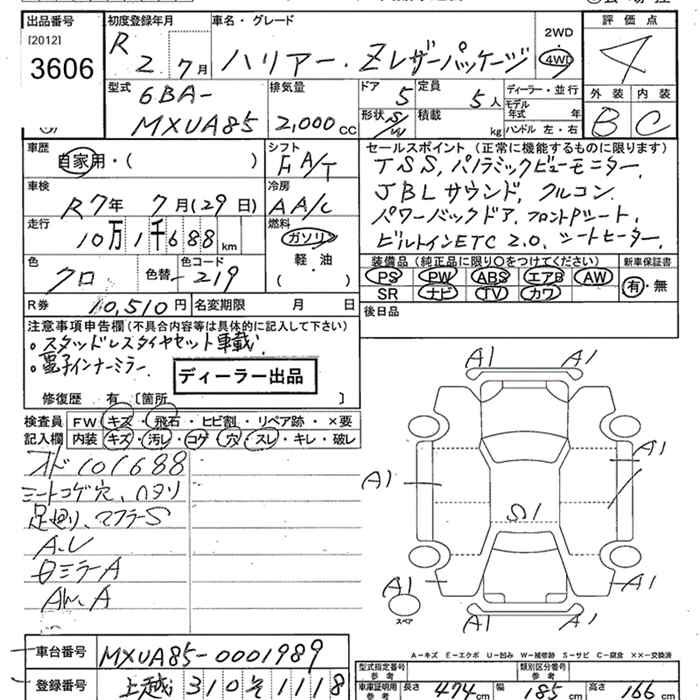 出品番号 初度登録年月 車名・グレード 2WD 評価点
[2012] R 2年 7月 ハリアー・Zレザーパッケージ 4WD 4
3606
型式 6BA- 排気量 ドア 5 定員 5人 ディーラー・並行 外装 内装
MXUA85 2,000cc 形状 S/W 積載 kg モデル年式 年 B C
ハンドル 左・右
車歴 シフト セールスポイント(正常に機能するものに限ります)
自家用・( ) F A/T TSS,パノラミックビューモニター,
車検 冷房 JBLサウンド,クルコン,
R7年 7月(29日) AA/C パワーバックドア,フロントPシート,
走行 燃料 ビルトインETC2.0,シートヒーター,
10万1千688km ガソリン
軽・油
( )
色 色替 色コード 装備品(純正品に限り○をつけてください) 新車保証書
クロ - 219 PS PW ABS エアB AW 有・無
SR ナビ TV カワ
R券 10,510円 名変期限 月 日 後日品
注意事項申告欄(不具合内容等は具体的に記入して下さい)
。スタッドレスタイヤセット車載
。電子インナーミラー.
ディーラー出品
修復歴 有〔箇所 〕
検査員 FW キズ・飛石・ヒビ割・リペア跡・×要
記入欄 内装 キズ・汚レ・コゲ・穴・スレ・キレ・破レ
オド101688
シートコゲ穴、ヘタリ
足廻り、マフラーS
A.U
ロミラーA
AW.A
A1 A1
A1
A1
S1
A1 A1
A1 A1
スペア
A-キズ E-エクボ U-凹み W-補修跡 S-サビ C-腐食 ××-交換済
車台番号 MXUA85-0001989
型式指定番号 参考 類別区分番号 参考
登録番号 上越 310 そ 1118
車庫証明用 参考 長さ 474cm 幅 185cm 高さ 166cm